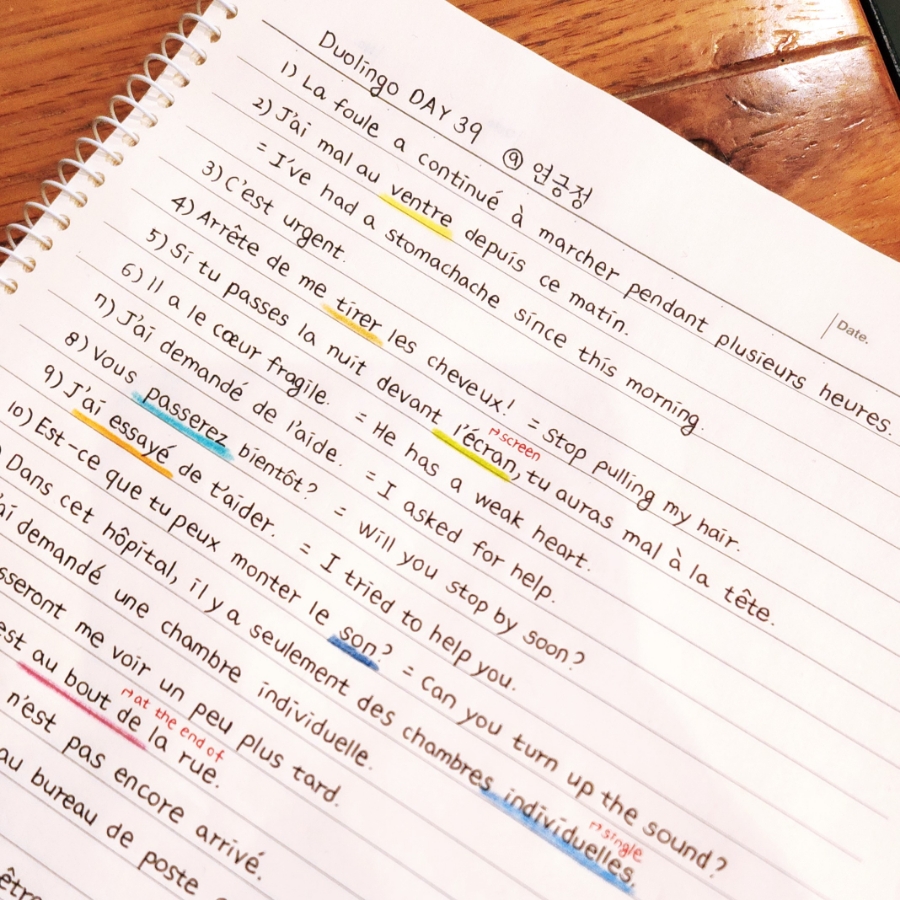 Duolingo DAY 39 @ 연긍정
Date.
1) La foule a continué à marcher pendant plusieurs heures.
2) J'ai mal au ventre depuis ce matin.
= I've had a stomachache since this morning.
3) C'est urgent.
4) Arrête de me tirer les cheveux! = Stop pulling my hair.
5) Si tu passes la nuit devant l'écran, tu auras mal à la tête.
screen
6) Il a le cœur fragile. = He has a weak heart.
7) J'ai demandé de l'aide. = I asked for help.
8) Vous passerez bientôt? = will you stop by soon?
9) J'ai essayé de t'aider. = I tried to help you.
10) Est-ce que tu peux monter le son? = Can you turn up the sound?
) Dans cet hôpital, il y a seulement des chambres individuelles.
single
ai demandé une chambre individuelle.
sseront me voir un peu plus tard.
est au bout de la rue.
at the end of
n'est pas encore arrivé.
au bureau de poste
être